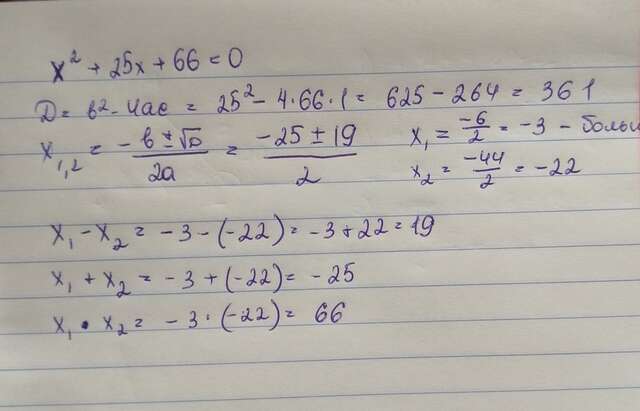 x² + 25x + 66 = 0
D = b² - 4ac = 25² - 4·66·1 = 625 - 264 = 361
x₁,₂ = (-b ± √D)/2a = (-25 ± 19)/2
x₁ = -6/2 = -3 - больш
x₂ = -44/2 = -22
x₁ - x₂ = -3 - (-22) = -3 + 22 = 19
x₁ + x₂ = -3 + (-22) = -25
x₁ · x₂ = -3 · (-22) = 66